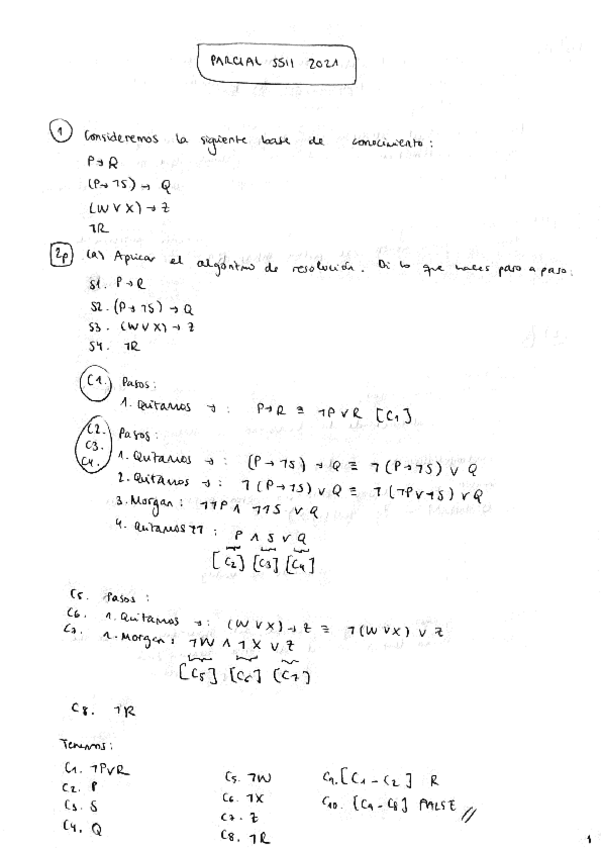 PARCIAL SSII 2021
1 Consideremos la siguiente base de conocimiento:
P→R
(P→¬S)→Q
(W∨X)→Z
¬R
2p (a) Aplicar el algoritmo de resolución. Di lo que haces paso a paso:
S1. P→R
S2. (P→¬S)→Q
S3. (W∨X)→Z
S4. ¬R
C1. Pasos:
1. Quitamos →: P→R ≡ ¬P∨R [C1]
C2. Pasos:
C3.
C4. 1. Quitamos →: (P→¬S)→Q ≡ ¬(P→¬S)∨Q
2. Quitamos →: ¬(P→¬S)∨Q ≡ ¬(¬P∨¬S)∨Q
3. Morgan: ¬¬P∧¬¬S∨Q
4. Quitamos ¬¬: P∧S∨Q
[C2] [C3] [C4]
C5. Pasos:
C6. 1. Quitamos →: (W∨X)→Z ≡ ¬(W∨X)∨Z
C7. 2. Morgan: ¬W∧¬X∨Z
[C5] [C6] [C7]
C8. ¬R
Tenemos:
C1. ¬P∨R
C2. P
C3. S
C4. Q
C5. ¬W
C6. ¬X
C7. Z
C8. ¬R
C9. [C1-C2] R
C10. [C9-C8] FALSE //
1